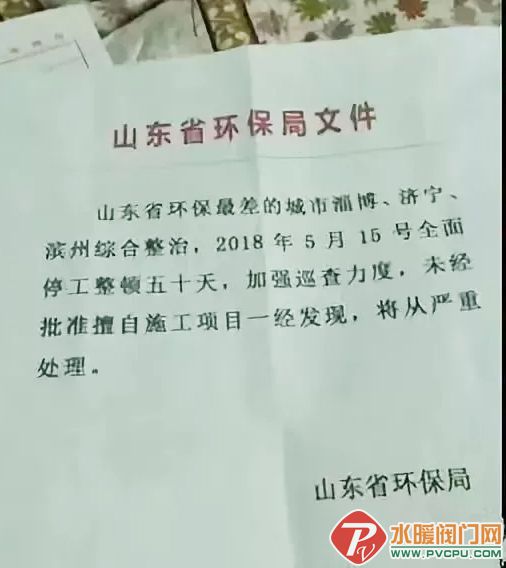 山东省环保局文件
山东省环保最差的城市淄博、济宁、
滨州综合整治，2018年5月15号全面
停工整顿五十天，加强巡查力度，未经
批准擅自施工项目一经发现，将从严重
处理。
山东省环保局
PV 水暖阀门网
WWW.PVCPU.COM